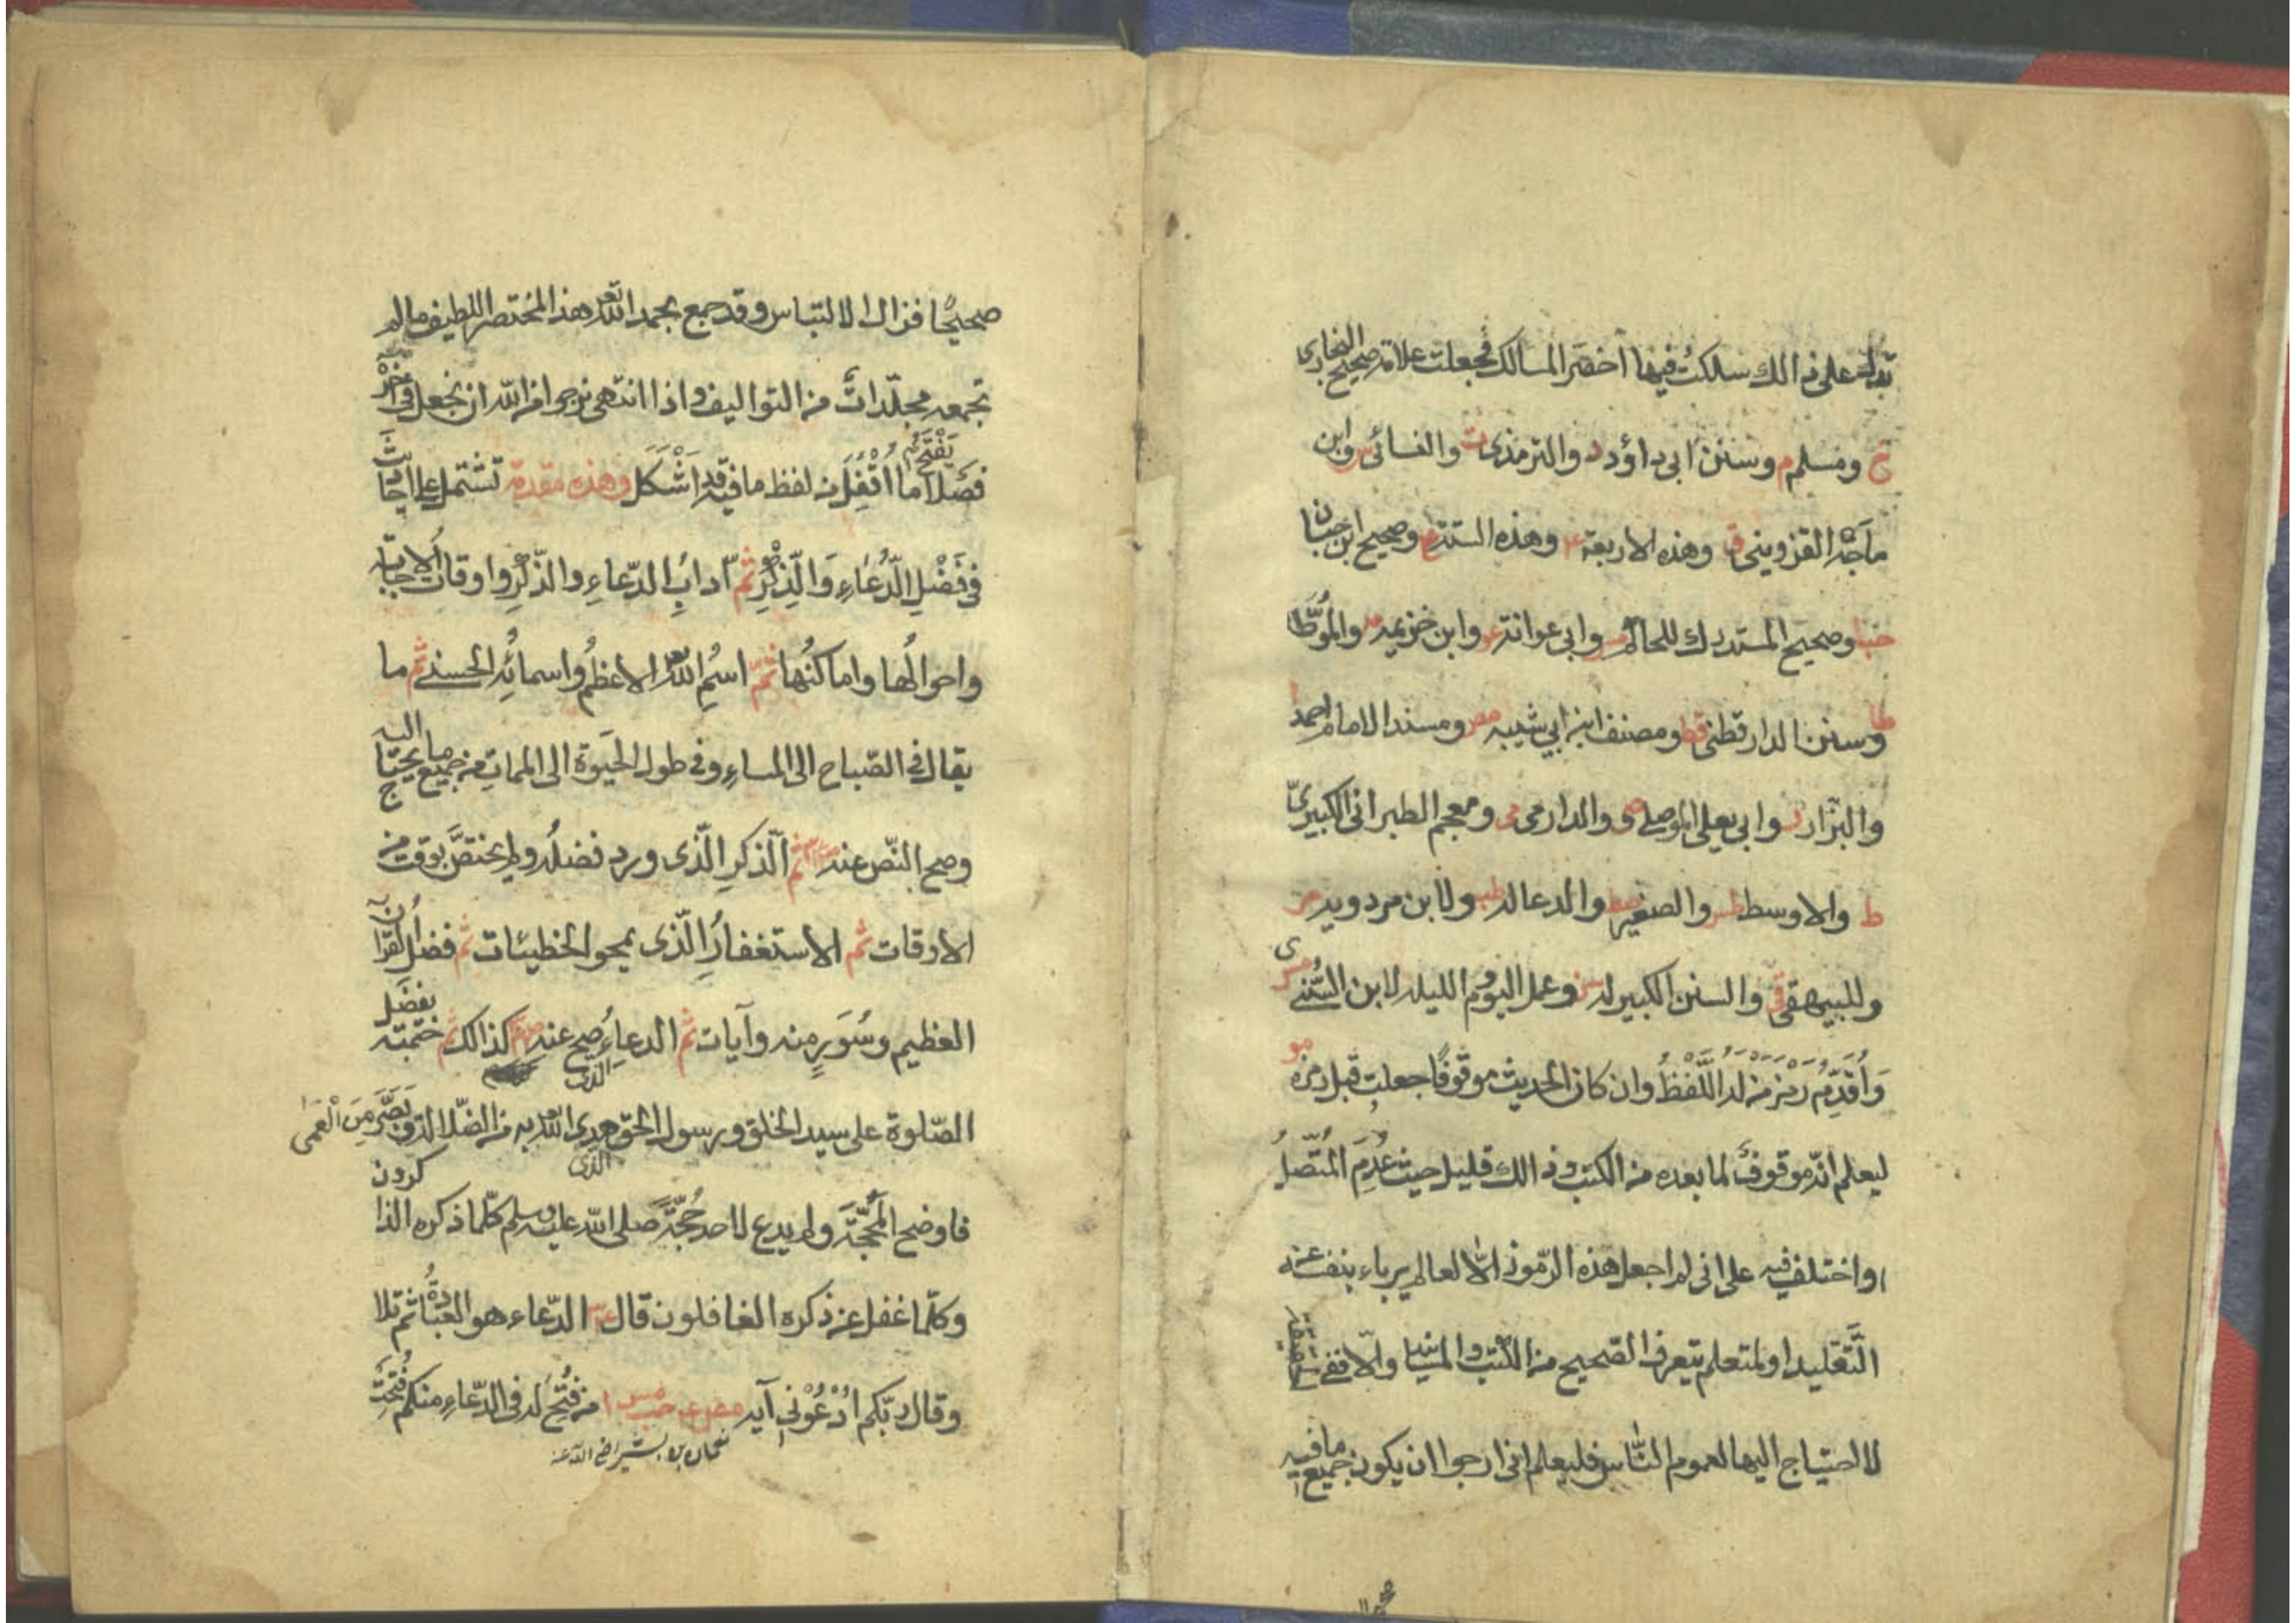 تدل على ذالك سلكت فيها أخضر المسالك فجعلت علامة صحيح البخارى
خ ومسلم م وسنن ابى داؤد د والترمذى ت والنسائى س وابن
ماجة القزوينى ق وهذه الاربعة عه وهذه الستة ع وصحيح ابن حبان
حب وصحيح المستدرك للحاكم مس وابى عوانة عو وابن خزيمه مه والموطّا
طا وسنن الدارقطنى قط ومصنف ابن ابي شيبه مص ومسند الامام احمد ا
والبزّار ر وابى يعلى الموصلى ص والدارمى مى ومعجم الطبرانى الكبير
ط والاوسط طس والصغير صط والدعا له طب ولابن مردويه مر
وللبيهقى قى والسنن الكبير له سنى وعمل اليوم والليله لابن السُّنّى ى
وَاُقَدِّمُ رَمْزَ مَنْ لَه اللَّفْظُ وان كان الحديث موقوفًا جعلت قبل رمزه مو
ليعلم انّه موقوفٌ لما بعده من الكتب وذالك قليل حيث عُدِمَ المتّصلُ
او اختلف فيه على انى لم اجعل هذه الرموز الّا لعالم يرباء بنفسه عن
التَّقليد او لمتعلم يتعرف الصّحيح من الكتب والمسانيد والّا ففى الحقيقة
لا احتياج اليها لعموم النّاس فليعلم انى ارجوا ان يكون جميع ما فيه
صحيحًا فزال الالتباس وقد جمع بحمد الله تعالى هذا المختصر اللطيف ما لم
تجمعه مجلّداتٌ من التواليف واذا انتهى نرجوا من الله ان نجعل فى آخره
فصلًا يَفْتَحُ ما اُقْفِلَ من لفظ ما فيه قد اَشْكَلَ وهذه مقدمة تشتمل على احاديث
فى فَضْلِ الدُّعَاءِ وَالذِّكْرِ ثم آدابِ الدّعاءِ والذِّكْرِ واوقات الاجابة
واحوالُها واماكنُها ثمّ اسمُ الله تعالى الاعظمُ واسمائُه الحسنى ثم ما
يقال فى الصّباح الى المساءِ وفى طول الحَيٰوة الى المماتِ من جميع ما يحتاج اليه
وصح النّص عنه ثم الذكرِ الّذى ورد فضلُه ولم يختصَّ بوقت من
الاوقات ثم الاستغفارُ الّذى يمحو الخطيئات ثم فضل القرآن
العظيم وسُوَرٍ منه وآيات ثم الدعاءُ الذى صح عنه كذالك ثم ختمته بفضل
الصّلوة على سيد الخلق ورسول الحق الذى هدى الله تعالى به من الضّلالة وبَصَّرَ مِنَ الْعَمٰى
فاوضح المحَجّةَ ولم يدع لاحد حُجّةً صلى الله عليه وسلم كلّما ذكره الذاكرون
وكلّما غفل عن ذكره الغافلون قال الدّعاء هو العبادةُ ثم تلا
وقال ربّكم ادْعُوْنى آيه مص عه حب مس ا من فُتِحَ له فى الدّعاءِ منكم فُتِحَتْ
نعمان بن بشير رضى الله عنه